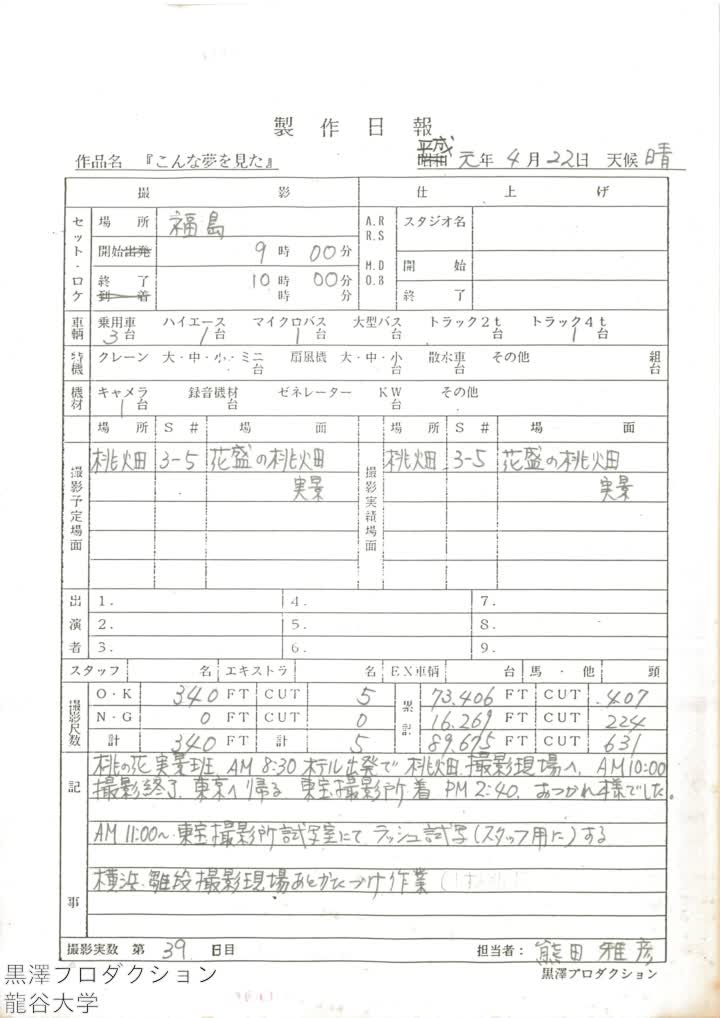 製作日報
作品名 『こんな夢を見た』 昭和 平成 元年 4月22日 天候 晴
撮影 仕上げ
セット・ロケ 場所 福島 A.R R.S スタジオ名
開始 出発 9時00分
M.D O.B 開始
終了 10時00分
到着 時 分 終了
車輌 乗用車 ハイエース マイクロバス 大型バス トラック2t トラック4t
3台 1台 1台 台 台 1台
特機 クレーン 大・中・小・ミニ 扇風機 大・中・小 散水車 その他 組
台 台 台 台
機材 キャメラ 録音機材 ゼネレーター KW その他
1台 台 台
場所 S# 場面 場所 S# 場面
撮影予定場面 桃畑 3-5 花盛の桃畑 撮影実績場面 桃畑 3-5 花盛の桃畑
実景 実景
出演者 1. 4. 7.
2. 5. 8.
3. 6. 9.
スタッフ 名 エキストラ 名 EX車輌 台 馬・他 頭
撮影尺数 O・K 340 FT CUT 5 累計 73.406 FT CUT 407
N・G 0 FT CUT 0 16.269 FT CUT 224
計 340 FT 計 5 89.675 FT CUT 631
記事 桃の花実景班 AM 8:30 ホテル出発で桃畑撮影現場へ、AM10:00
撮影終了、東京へ帰る 東宝撮影所着 PM 2:40、おつかれ様でした。
AM 11:00〜 東宝撮影所試写室にて ラッシュ試写(スタッフ用に)する
横浜、雛段撮影現場あとかたづけ作業
撮影実数 第 39 日目 担当者: 熊田雅彦
黒澤プロダクション
黒澤プロダクション
龍谷大学